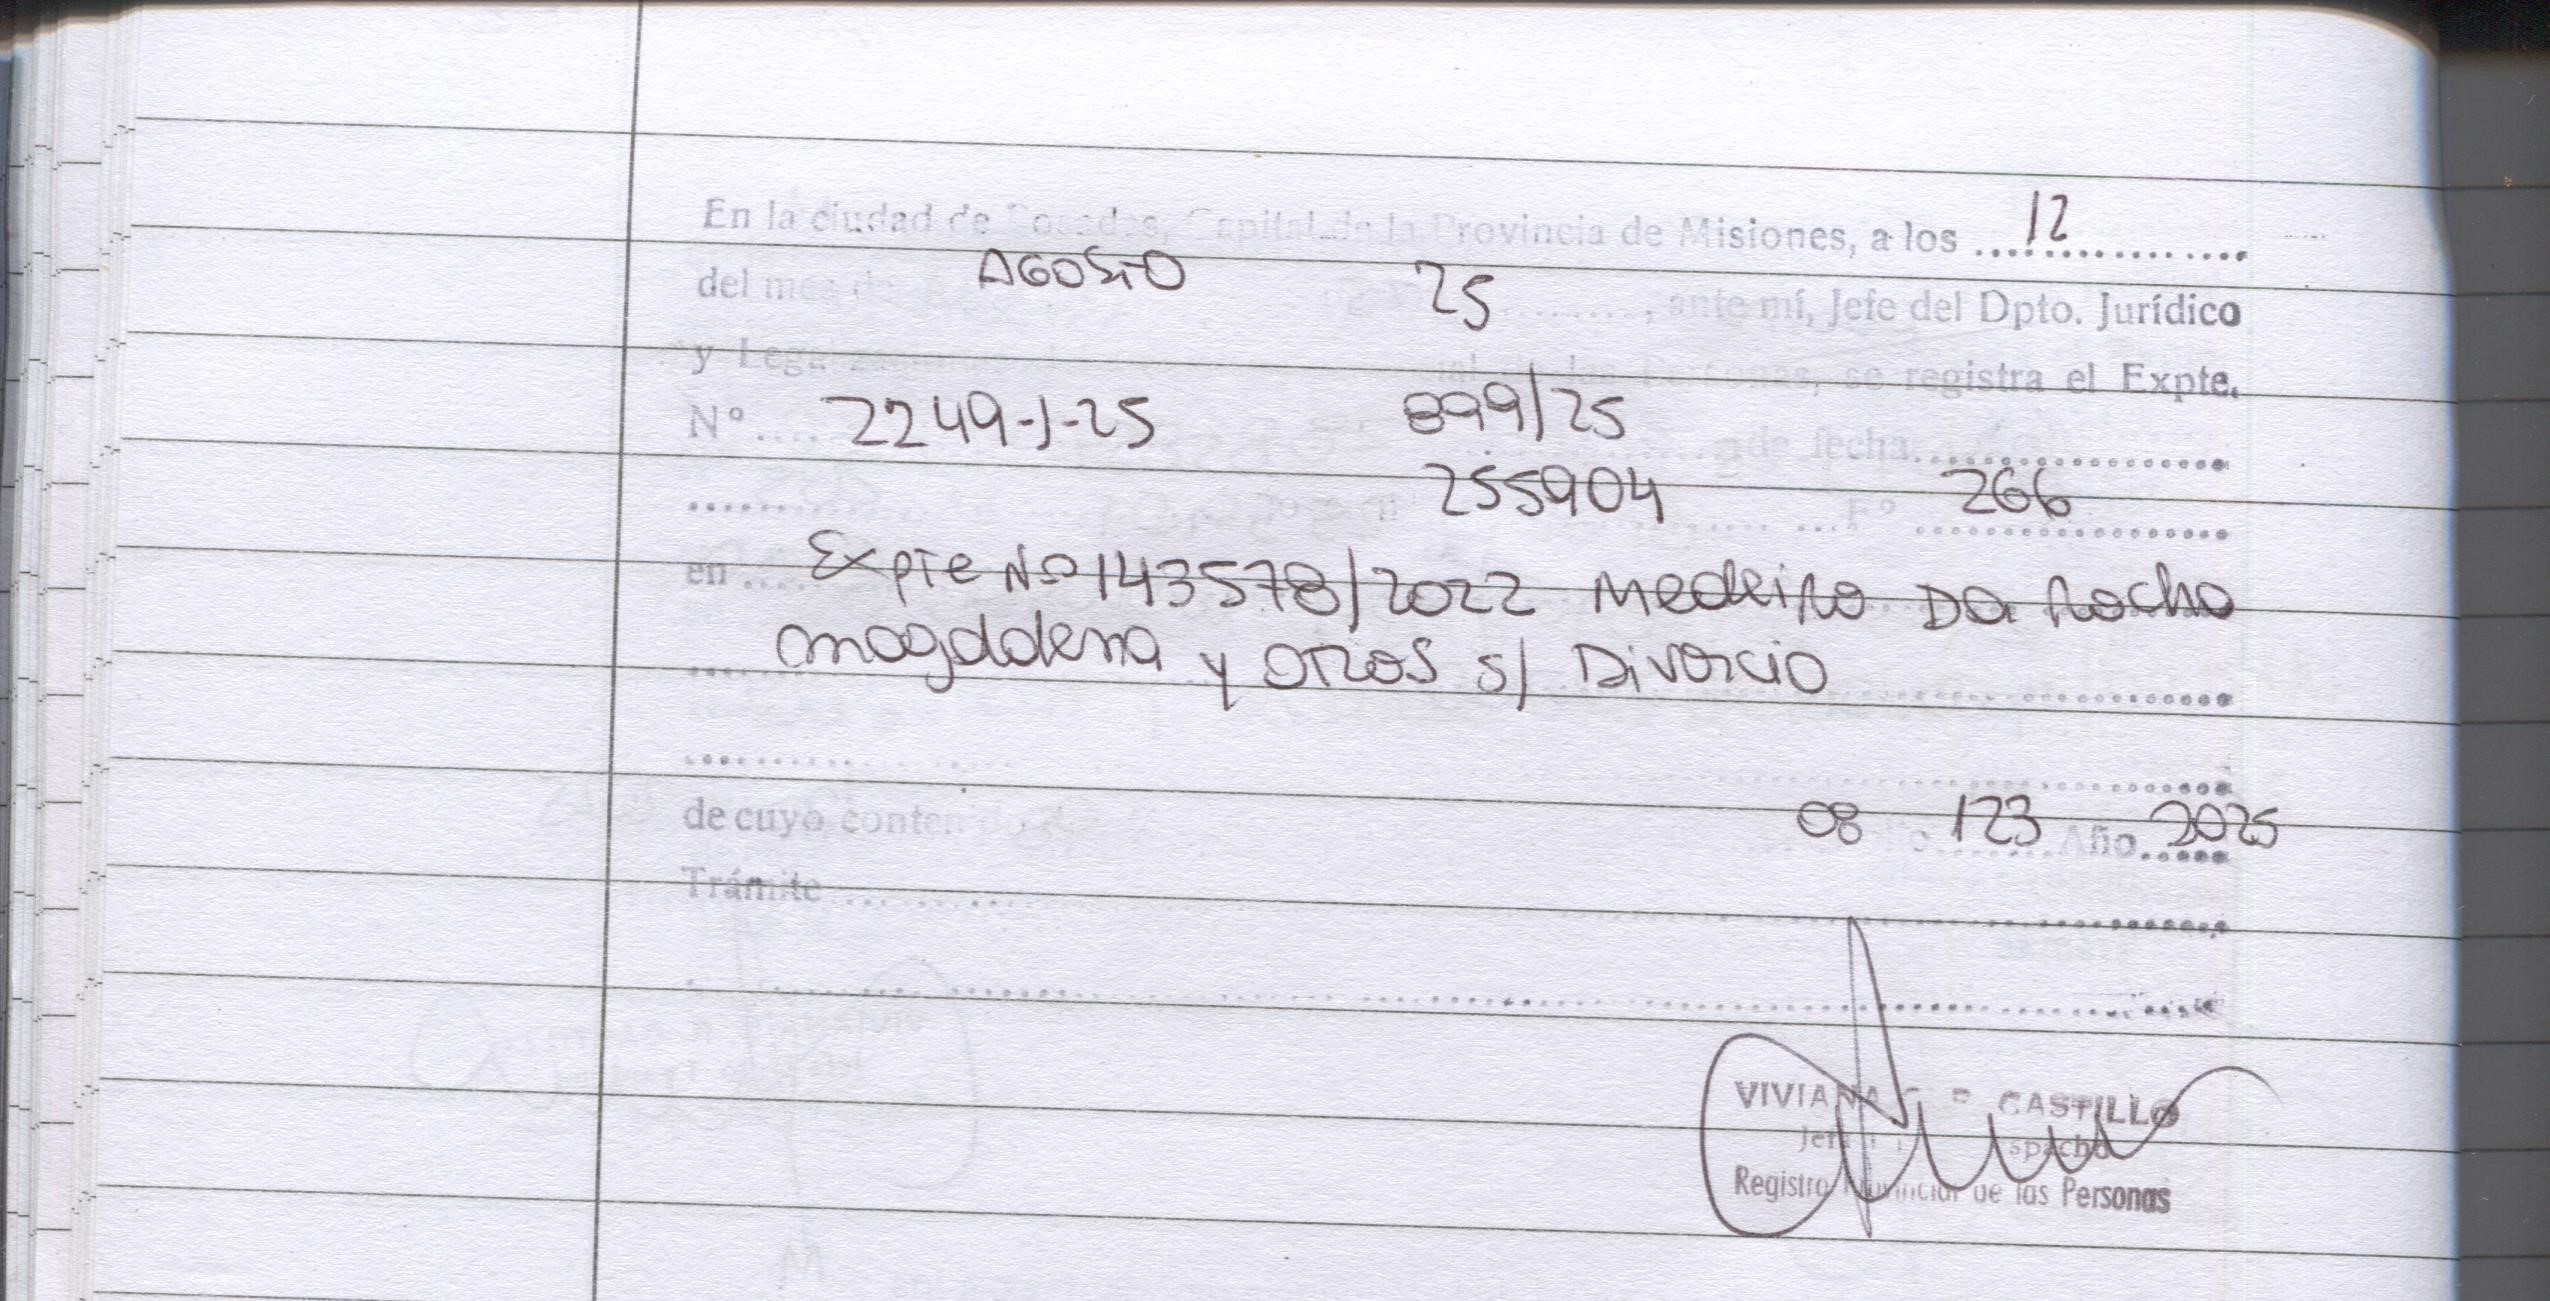 En la ciudad de Posadas, Capital de la Provincia de Misiones, a los 12
del mes de AGOSTO 25, ante mí, Jefe del Dpto. Jurídico
y se registra el Expte.
Nº 2249-J-25 899/25 de fecha
255904 Fº 266
en Expte Nº 143578/2022 Medeiro Da Rocha
magdalena y otros s/ Divorcio
de cuyo contenido 08 123 Año 2025
Trámite
VIVIANA CASTILLO
Registro Provincial de las Personas